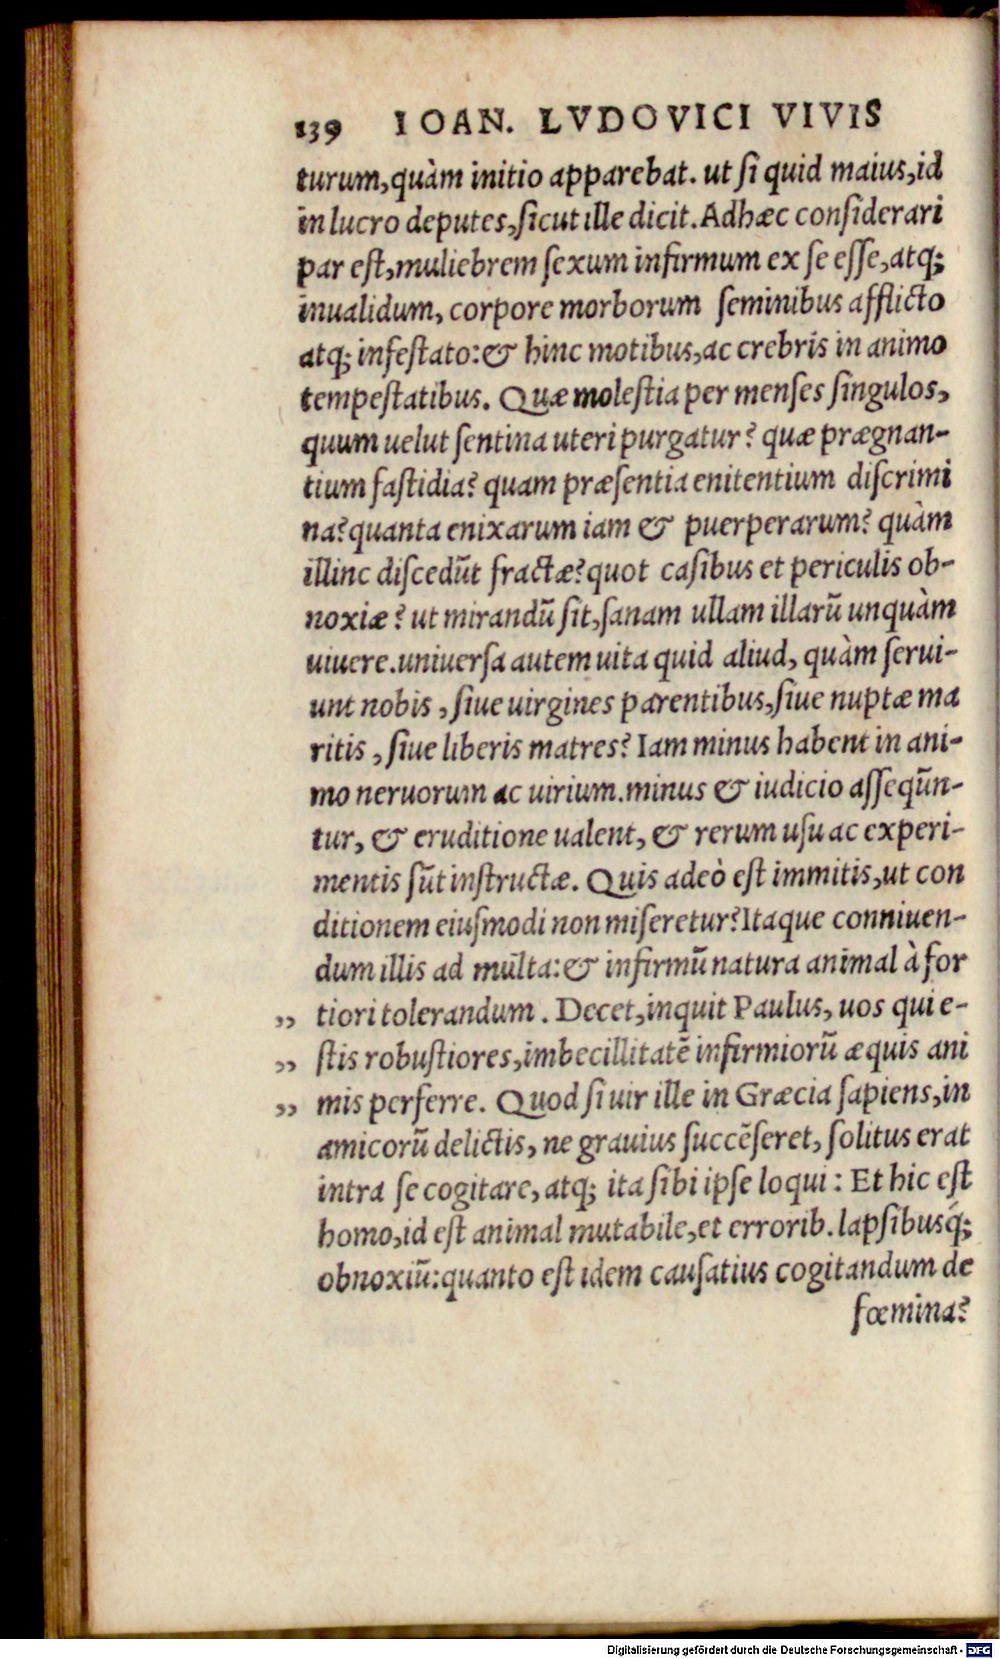 139 IOAN. LVDOVICI VIVIS
turum,quàm initio apparebat. ut ſi quid maius,id
in lucro deputes,ſicut ille dicit. Adhæc conſiderari
par eſt,muliebrem ſexum infirmum ex ſe eſſe,atq;
inualidum, corpore morborum ſeminibus afflicto
atq; infeſtato:& hinc motibus,ac crebris in animo
tempeſtatibus. Quæ moleſtia per menſes ſingulos,
quum uelut ſentina uteri purgatur? quæ prægnan-
tium faſtidia? quam præſentia enitentium diſcrimi
na? quanta enixarum iam & puerperarum? quàm
illinc diſcedũt fractæ? quot caſibus et periculis ob-
noxiæ? ut mirandũ ſit,ſanam ullam illarũ unquàm
uiuere. uniuerſa autem uita quid aliud, quàm ſerui-
unt nobis , ſiue uirgines parentibus,ſiue nuptæ ma
ritis , ſiue liberis matres? Iam minus habent in ani-
mo neruorum ac uirium. minus & iudicio aſſeqũn-
tur, & eruditione ualent, & rerum uſu ac experi-
mentis ſũt inſtructæ. Quis adeò eſt immitis,ut con
ditionem eiuſmodi non miſeretur? Itaque conniuen-
dum illis ad multa:& infirmũ natura animal à for
„ tiori tolerandum . Decet,inquit Paulus, uos qui e-
„ ſtis robuſtiores,imbecillitatẽ infirmiorũ æquis ani
„ mis perferre. Quod ſi uir ille in Græcia ſapiens,in
amicorũ delictis, ne grauius ſuccẽſeret, ſolitus erat
intra ſe cogitare, atq; ita ſibi ipſe loqui : Et hic eſt
homo,id eſt animal mutabile,et errorib. lapſibusq́;
obnoxiũ:quanto eſt idem cauſatius cogitandum de
fœmina?
Digitalisierung gefördert durch die Deutsche Forschungsgemeinschaft - DFG